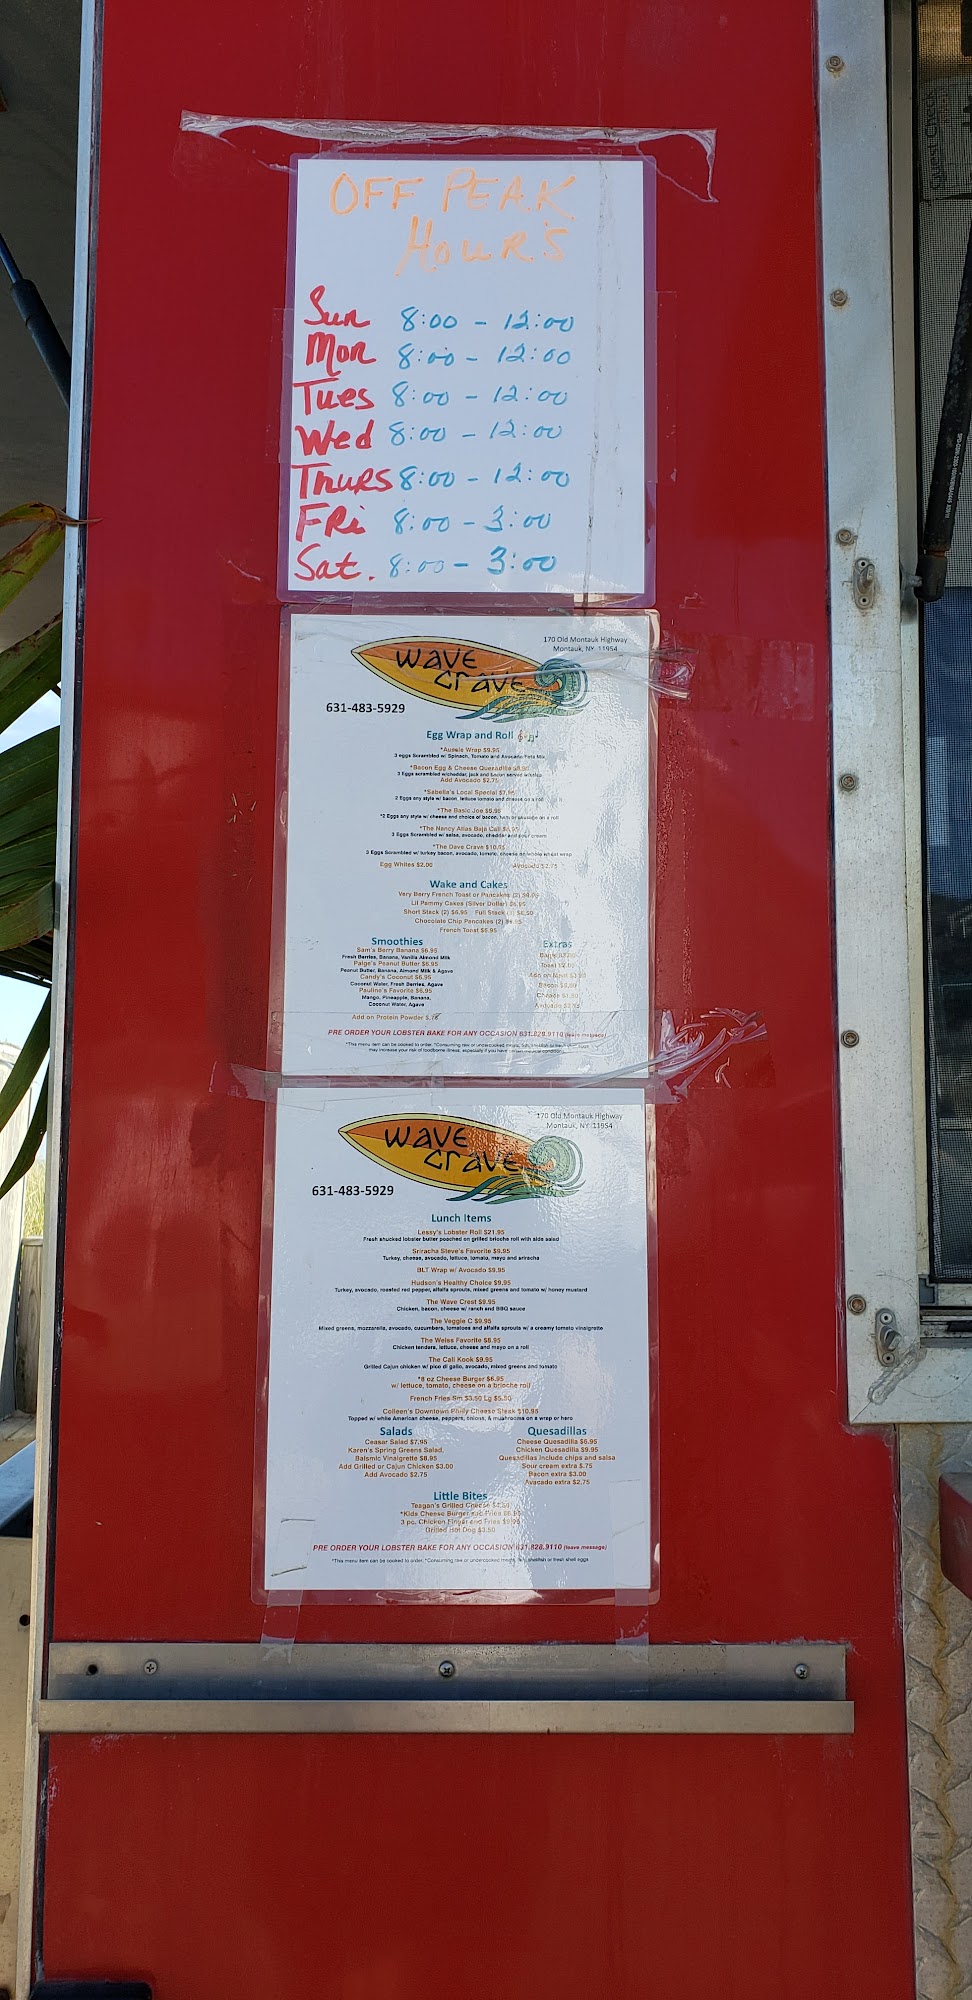 OFF PEAK
HOUR'S
Sun 8:00 - 12:00
Mon 8:00 - 12:00
Tues 8:00 - 12:00
Wed 8:00 - 12:00
Thurs 8:00 - 12:00
Fri 8:00 - 3:00
Sat. 8:00 - 3:00
170 Old Montauk Highway
Montauk, NY 11954
Wave
Crave
631-483-5929
Egg Wrap and Roll
*Aussie Wrap $9.95
3 eggs Scrambled w/ Spinach, Tomato and Avocado Feta Mix
*Bacon Egg & Cheese Quesadilla
3 Eggs scrambled w/cheddar, jack and bacon served w/salsa
Add Avocado $2.75
*Sabella's Local Special
2 Eggs any style w/ bacon, lettuce tomato and cheese on a roll
*The Basic Joe $6.95
*2 Eggs any style w/ cheese and choice of bacon, ham or sausage on a roll
*The Nancy Atlas Baja Cali
3 Eggs Scrambled w/ salsa, avocado, cheddar and sour cream
*The Dave Crave $10.95
3 Eggs Scrambled w/ turkey bacon, avocado, tomato, cheese on whole wheat wrap
Egg Whites $2.00 Avocado $2.75
Wake and Cakes
Very Berry French Toast or Pancakes (2)
Lil Pammy Cakes (Silver Dollar) $6.95
Short Stack (2) $6.95 Full Stack
Chocolate Chip Pancakes (2)
French Toast $6.95
Smoothies
Sam's Berry Banana $6.95
Fresh Berries, Banana, Vanilla Almond Milk
Paige's Peanut Butter $6.95
Peanut Butter, Banana, Almond Milk & Agave
Candy's Coconut $6.95
Coconut Water, Fresh Berries, Agave
Pauline's Favorite $6.95
Mango, Pineapple, Banana,
Coconut Water, Agave
Add on Protein Powder $.75
Extras
Bagel
Toast $2.00
Add on Meat
Bacon
Cheese
Avocado
PRE ORDER YOUR LOBSTER BAKE FOR ANY OCCASION 631.828.9110 (leave message)
*This menu item can be cooked to order. *Consuming raw or undercooked meats, fish, shellfish or fresh shell eggs
may increase your risk of foodborne illness, especially if you have certain medical conditions.
170 Old Montauk Highway
Montauk, NY 11954
Wave
Crave
631-483-5929
Lunch Items
Lessy's Lobster Roll $21.95
Fresh shucked lobster butter poached on grilled brioche roll with side salad
Sriracha Steve's Favorite $9.95
Turkey, cheese, avocado, lettuce, tomato, mayo and sriracha
BLT Wrap w/ Avocado $9.95
Hudson's Healthy Choice $9.95
Turkey, avocado, roasted red pepper, alfalfa sprouts, mixed greens and tomato w/ honey mustard
The Wave Crest $9.95
Chicken, bacon, cheese w/ ranch and BBQ sauce
The Veggie C $9.95
Mixed greens, mozzarella, avocado, cucumbers, tomatoes and alfalfa sprouts w/ a creamy tomato vinaigrette
The Weiss Favorite $8.95
Chicken tenders, lettuce, cheese and mayo on a roll
The Cali Kook $9.95
Grilled Cajun chicken w/ pico di gallo, avocado, mixed greens and tomato
*8 oz Cheese Burger $6.95
w/ lettuce, tomato, cheese on a brioche roll
French Fries Sm $3.50 Lg $5.50
Colleen's Downtown Philly Cheese Steak $10.95
Topped w/ white American cheese, peppers, onions, & mushrooms on a wrap or hero
Salads
Ceasar Salad $7.95
Karen's Spring Greens Salad,
Balsmic Vinaigrette $8.95
Add Grilled or Cajun Chicken $3.00
Add Avocado $2.75
Quesadillas
Cheese Quesadilla $6.95
Chicken Quesadilla $9.95
Quesadillas include chips and salsa
Sour cream extra $.75
Bacon extra $3.00
Avacado extra $2.75
Little Bites
Teagan's Grilled Cheese
*Kids Cheese Burger and Fries
3 pc. Chicken Finger and Fries $9.95
Grilled Hot Dog $3.50
PRE ORDER YOUR LOBSTER BAKE FOR ANY OCCASION 631.828.9110 (leave message)
*This menu item can be cooked to order. *Consuming raw or undercooked meats, fish, shellfish or fresh shell eggs